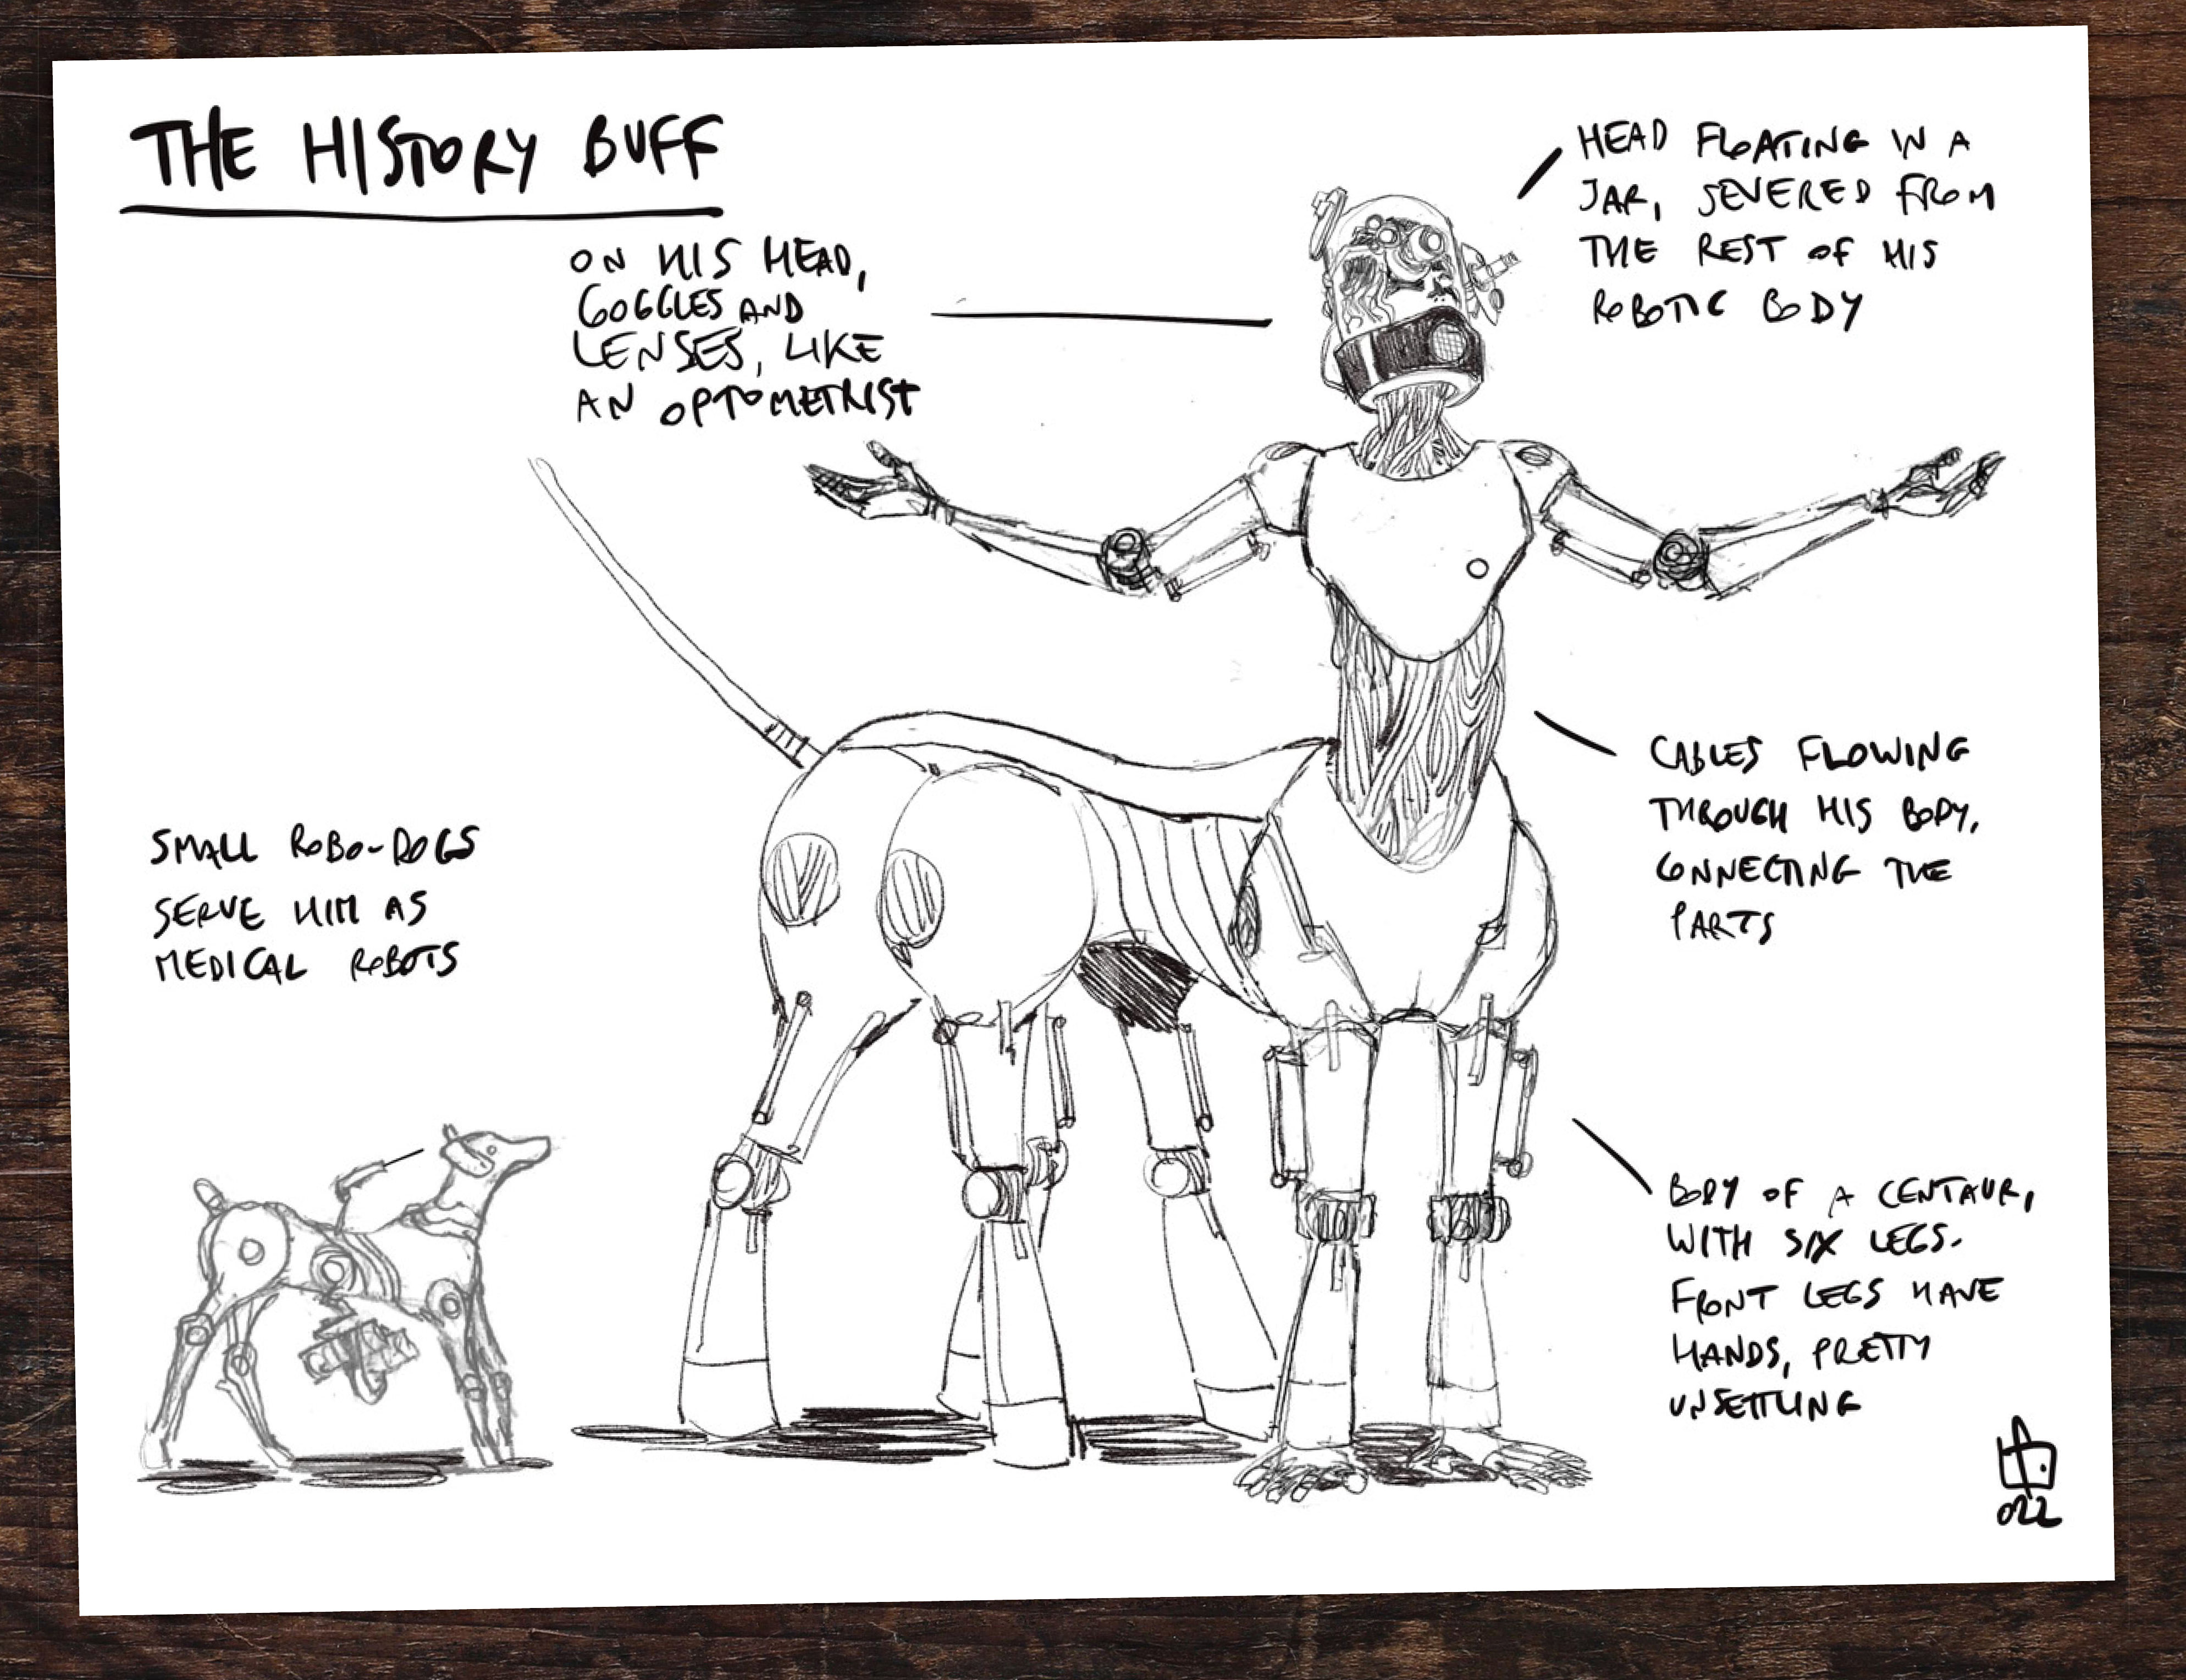 THE HISTORY BUFF
ON HIS HEAD,
GOGGLES AND
LENSES, LIKE
AN OPTOMETRIST
HEAD FLOATING IN A
JAR, SEVERED FROM
THE REST OF HIS
ROBOTIC BODY
CABLES FLOWING
THROUGH HIS BODY,
CONNECTING THE
PARTS
SMALL ROBO-DOGS
SERVE HIM AS
MEDICAL ROBOTS
BODY OF A CENTAUR,
WITH SIX LEGS.
FRONT LEGS HAVE
HANDS, PRETTY
UNSETTLING
022